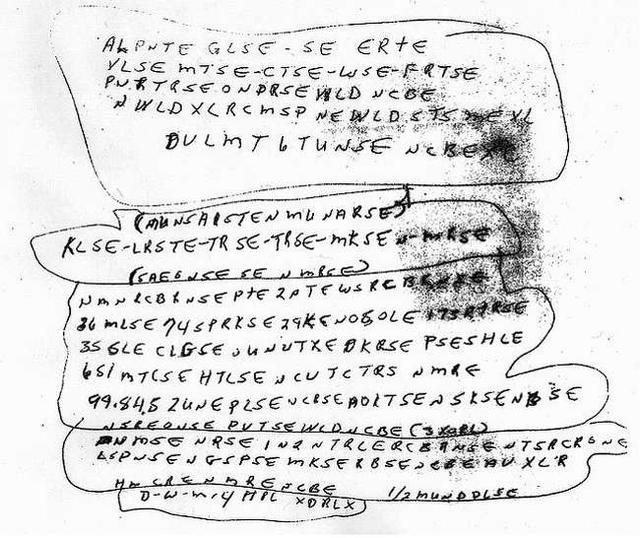 ALPNTE GLSE - SE ERTE
VLSE MTSE-CTSE-WSE-FRTSE
PNRTRSE ONDRSE WLD NCBE
NWLDXLRCMSP NEWLD STS ME XL
DULMT 6 TUNSE NCBE XC
(MUNSARSTEN MUNARSE)
KLSE-LRSTE-TRSE-TRSE-MKSEN-MRSE
(SAEGNSE SE N MRSE)
NMNRCBRNSE PTE 2 PTE WSRCBRNSE
36 MLSE 74 SPRKSE 29KENOSOLE 173RTRSE
35 GLE CLGSE UNUTXE DKRSE PSESHLE
651 MTCSE HTLSE NCUTCTRS NMRE
99.84.5 2UNE PLSE NCRSE AOLTSE NSKSE NBSE
NSREONSE PUTSE WLD NCBE (3XORL)
NMSE NRSE IN2NTRLERCBRNSE NTSRCRONE
LSPNSE NGSPSE MKSERBSE NCBE AU XLR
HM CRE NMRE NCBE 1/2 MUNDDLSE
D-W-M-14 MPL XDRLX